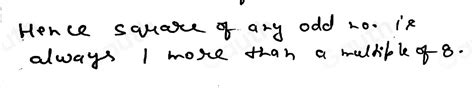 Hence square of any odd no. is
always 1 more than a multiple of 8.